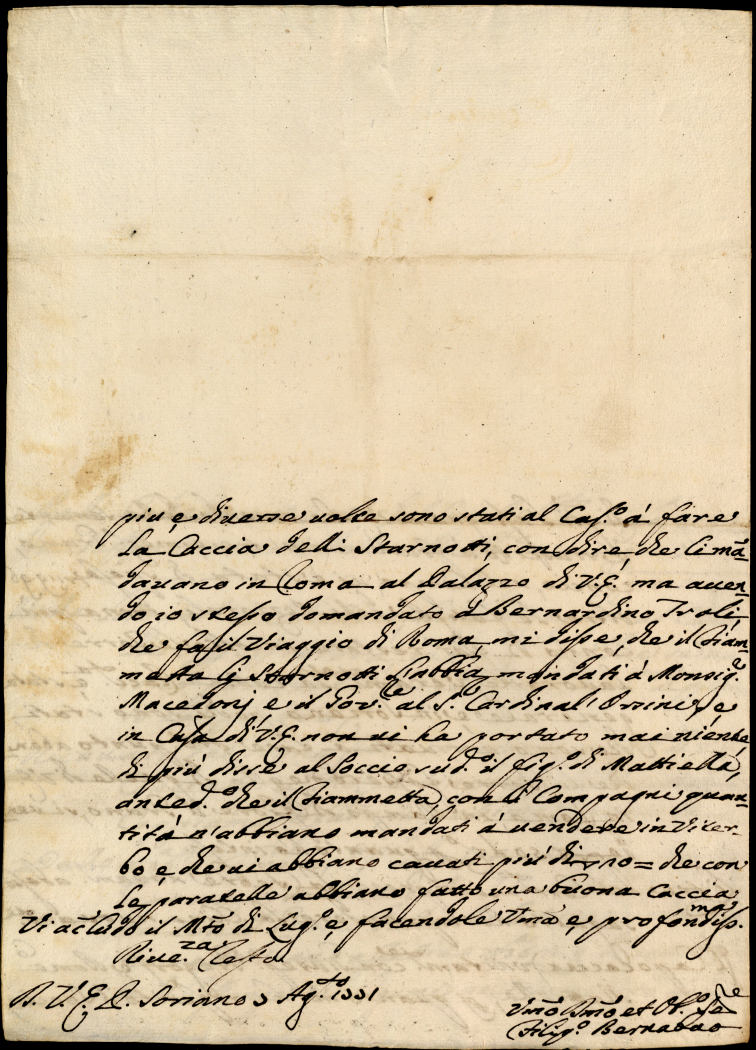 più, e diverse volte sono stati al Cas.o á fare
La Caccia delli Starnotti, con dire, che li mā-
davano in Roma al Palazzo di V.E. ma aven-
do io stesso domandato á Bernardino Troli,
che fa il Viaggio di Roma, mi disse, che il Fiam-
metta li Starnotti l'abbia mandati á Monsig.e
Macedonj e il Gov.re al S.e Cardinal' Orsini, e
in Casa di V.E. non vi ha portato mai niente,
di più disse al Soccio sud.o il fig.o di Mattiella,
anted.o che il Fiammetta, con Compagni quan-
titá n'abbiano mandati á vendere in Viter-
bo, e che vi abbiano cavati più di 10= che con
le paratelle abbiano fatto una buona Caccia
Vi acludo il Mto di Lug.o e, facendole Vma e, profondiss.ma
Rive.za Resto
D. V. E. Soriano 3 Ag.to 1751
Vmo Dmo et Ob.o Se.re
Filip.o Bernabeo